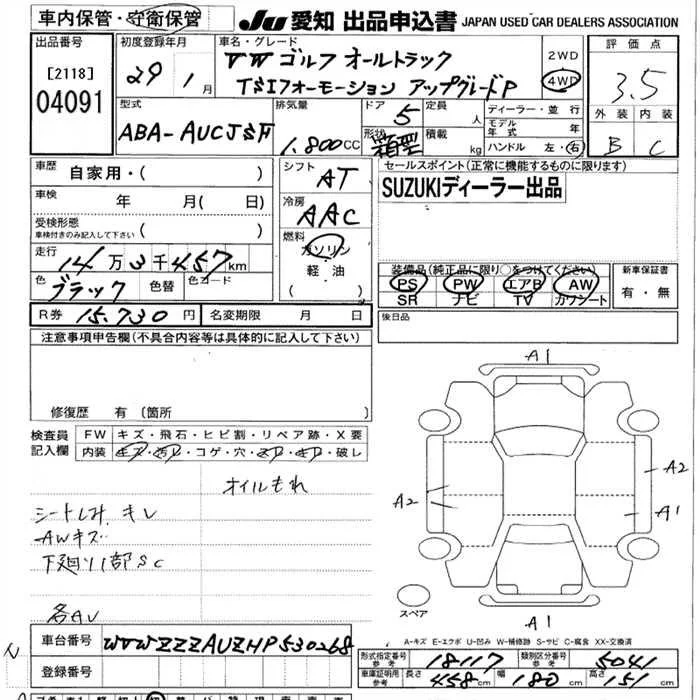 車内保管・守衛保管
JU 愛知 出品申込書 JAPAN USED CAR DEALERS ASSOCIATION
出品番号
[2118]
04091
初度登録年月
29年 1月
車名・グレード
VW ゴルフ オールトラック
TSIフォーモーション アップグレードP
2WD
4WD
評価点
3.5
外装 内装
B C
型式
ABA-AUCJSF
排気量
1.800 CC
ドア 5
形状 箱型
定員 人
積載 kg
ディーラー・並行
モデル年式 年
ハンドル 左・右
車歴 自家用・( )
車検 年 月( 日)
受検形態
車検付きのみ記入して下さい ( )
走行
14万3千457km
色 ブラック 色替 色コード
シフト AT
冷房 AAC
燃料
ガソリン
軽・油
( )
セールスポイント(正常に機能するものに限ります)
SUZUKIディーラー出品
装備品(純正品に限り○をつけてください)
PS PW エアB AW
SR ナビ TV カワシート
新車保証書
有・無
R券 15.730円 名変期限 月 日
後日品
注意事項申告欄(不具合内容等は具体的に記入して下さい)
修復歴 有(箇所 )
検査員記入欄
FW キズ・飛石・ヒビ割・リペア跡・X要
内装 キズ・汚レ・コゲ・穴・スレ・キレ・破レ
オイルもれ
シートしみ、キレ
AWキズ
下廻り1部SC
各AU
A1
A2
A2
A1
A1
スペア
A-キズ E-エクボ U-凹み W-補修跡 S-サビ C-腐食 XX-交換済
車台番号 WVWZZZAUZHP530268
登録番号
形式指定番号 参考 18117
類別区分番号 参考 5041
車庫証明用 参考 長さ 458cm 幅 180cm 高さ 151cm